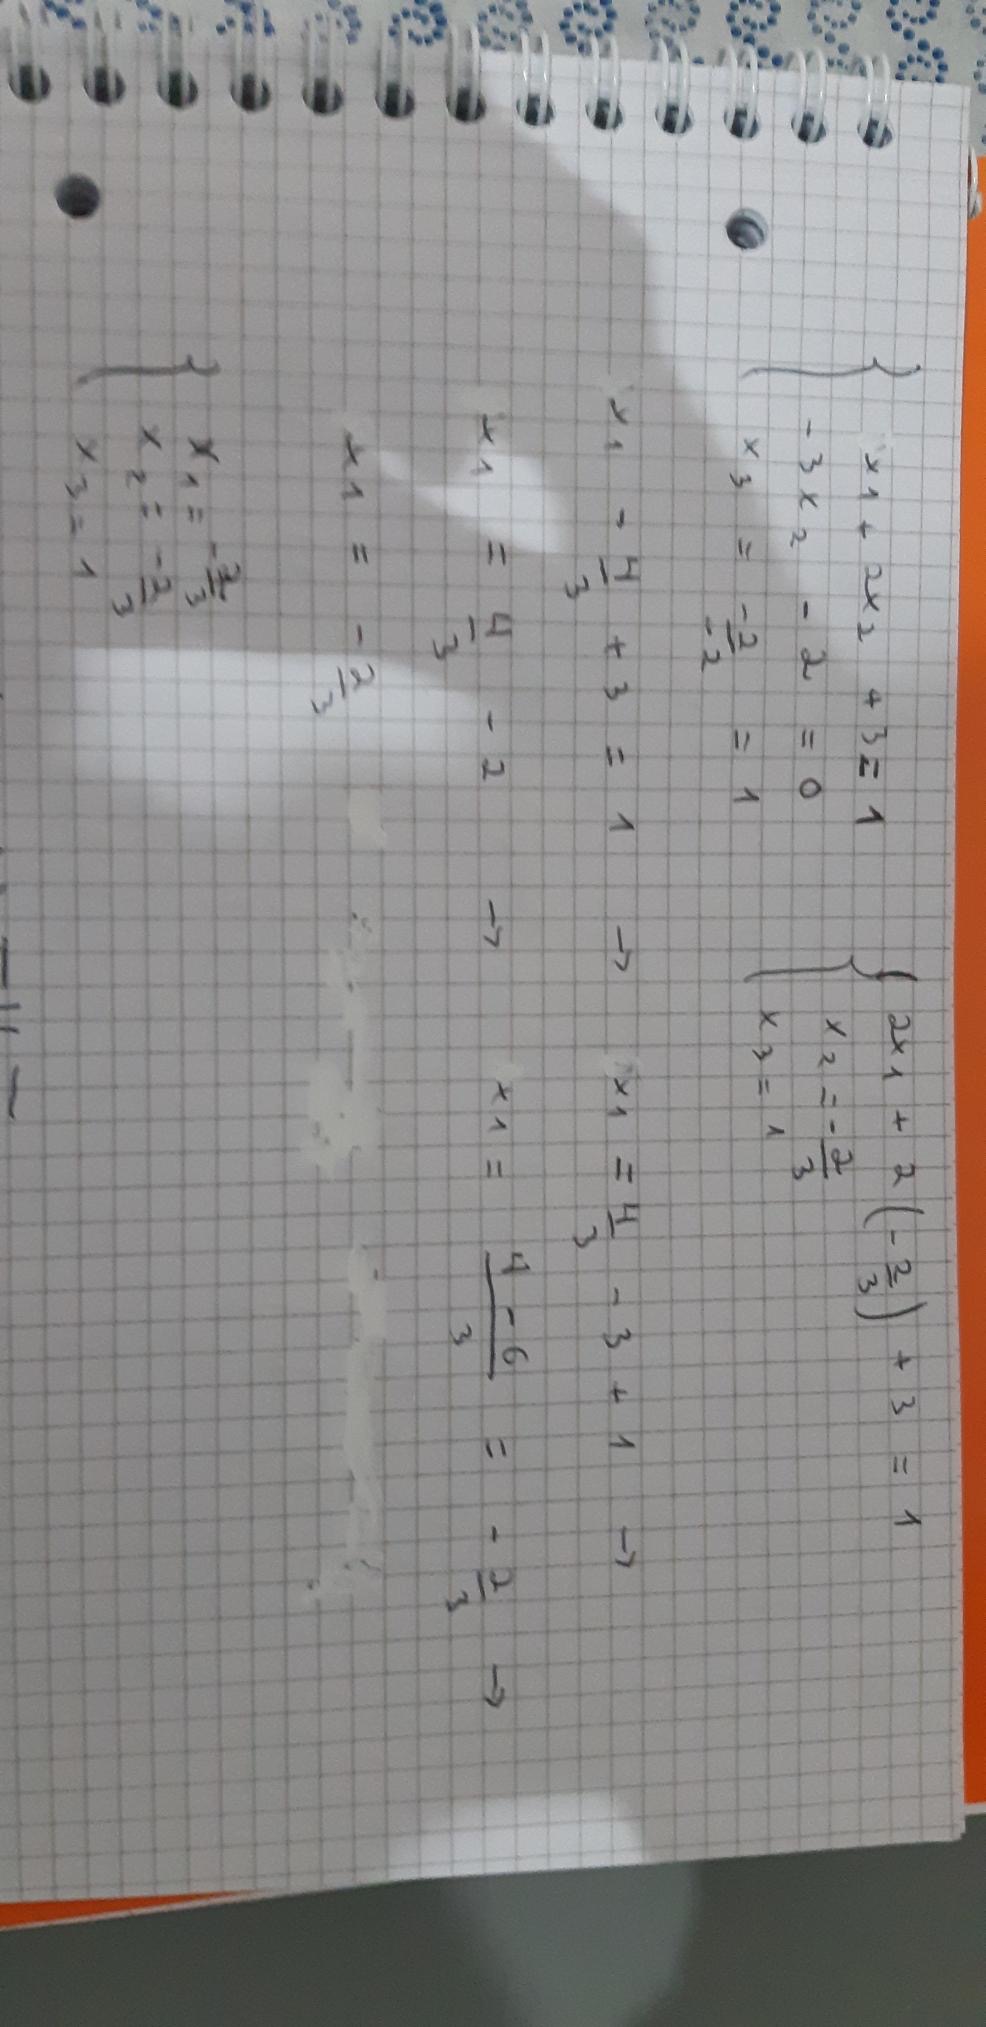 { x1 + 2x2 + 3 = 1
-3x2 - 2 = 0
x3 = -2/-2 = 1
{ 2x1 + 2(-2/3) + 3 = 1
x2 = -2/3
x3 = 1
x1 - 4/3 + 3 = 1 → x1 = 4/3 - 3 + 1 →
x1 = 4/3 - 2 → x1 = (4 - 6)/3 = -2/3 →
x1 = -2/3
{ x1 = -2/3
x2 = -2/3
x3 = 1